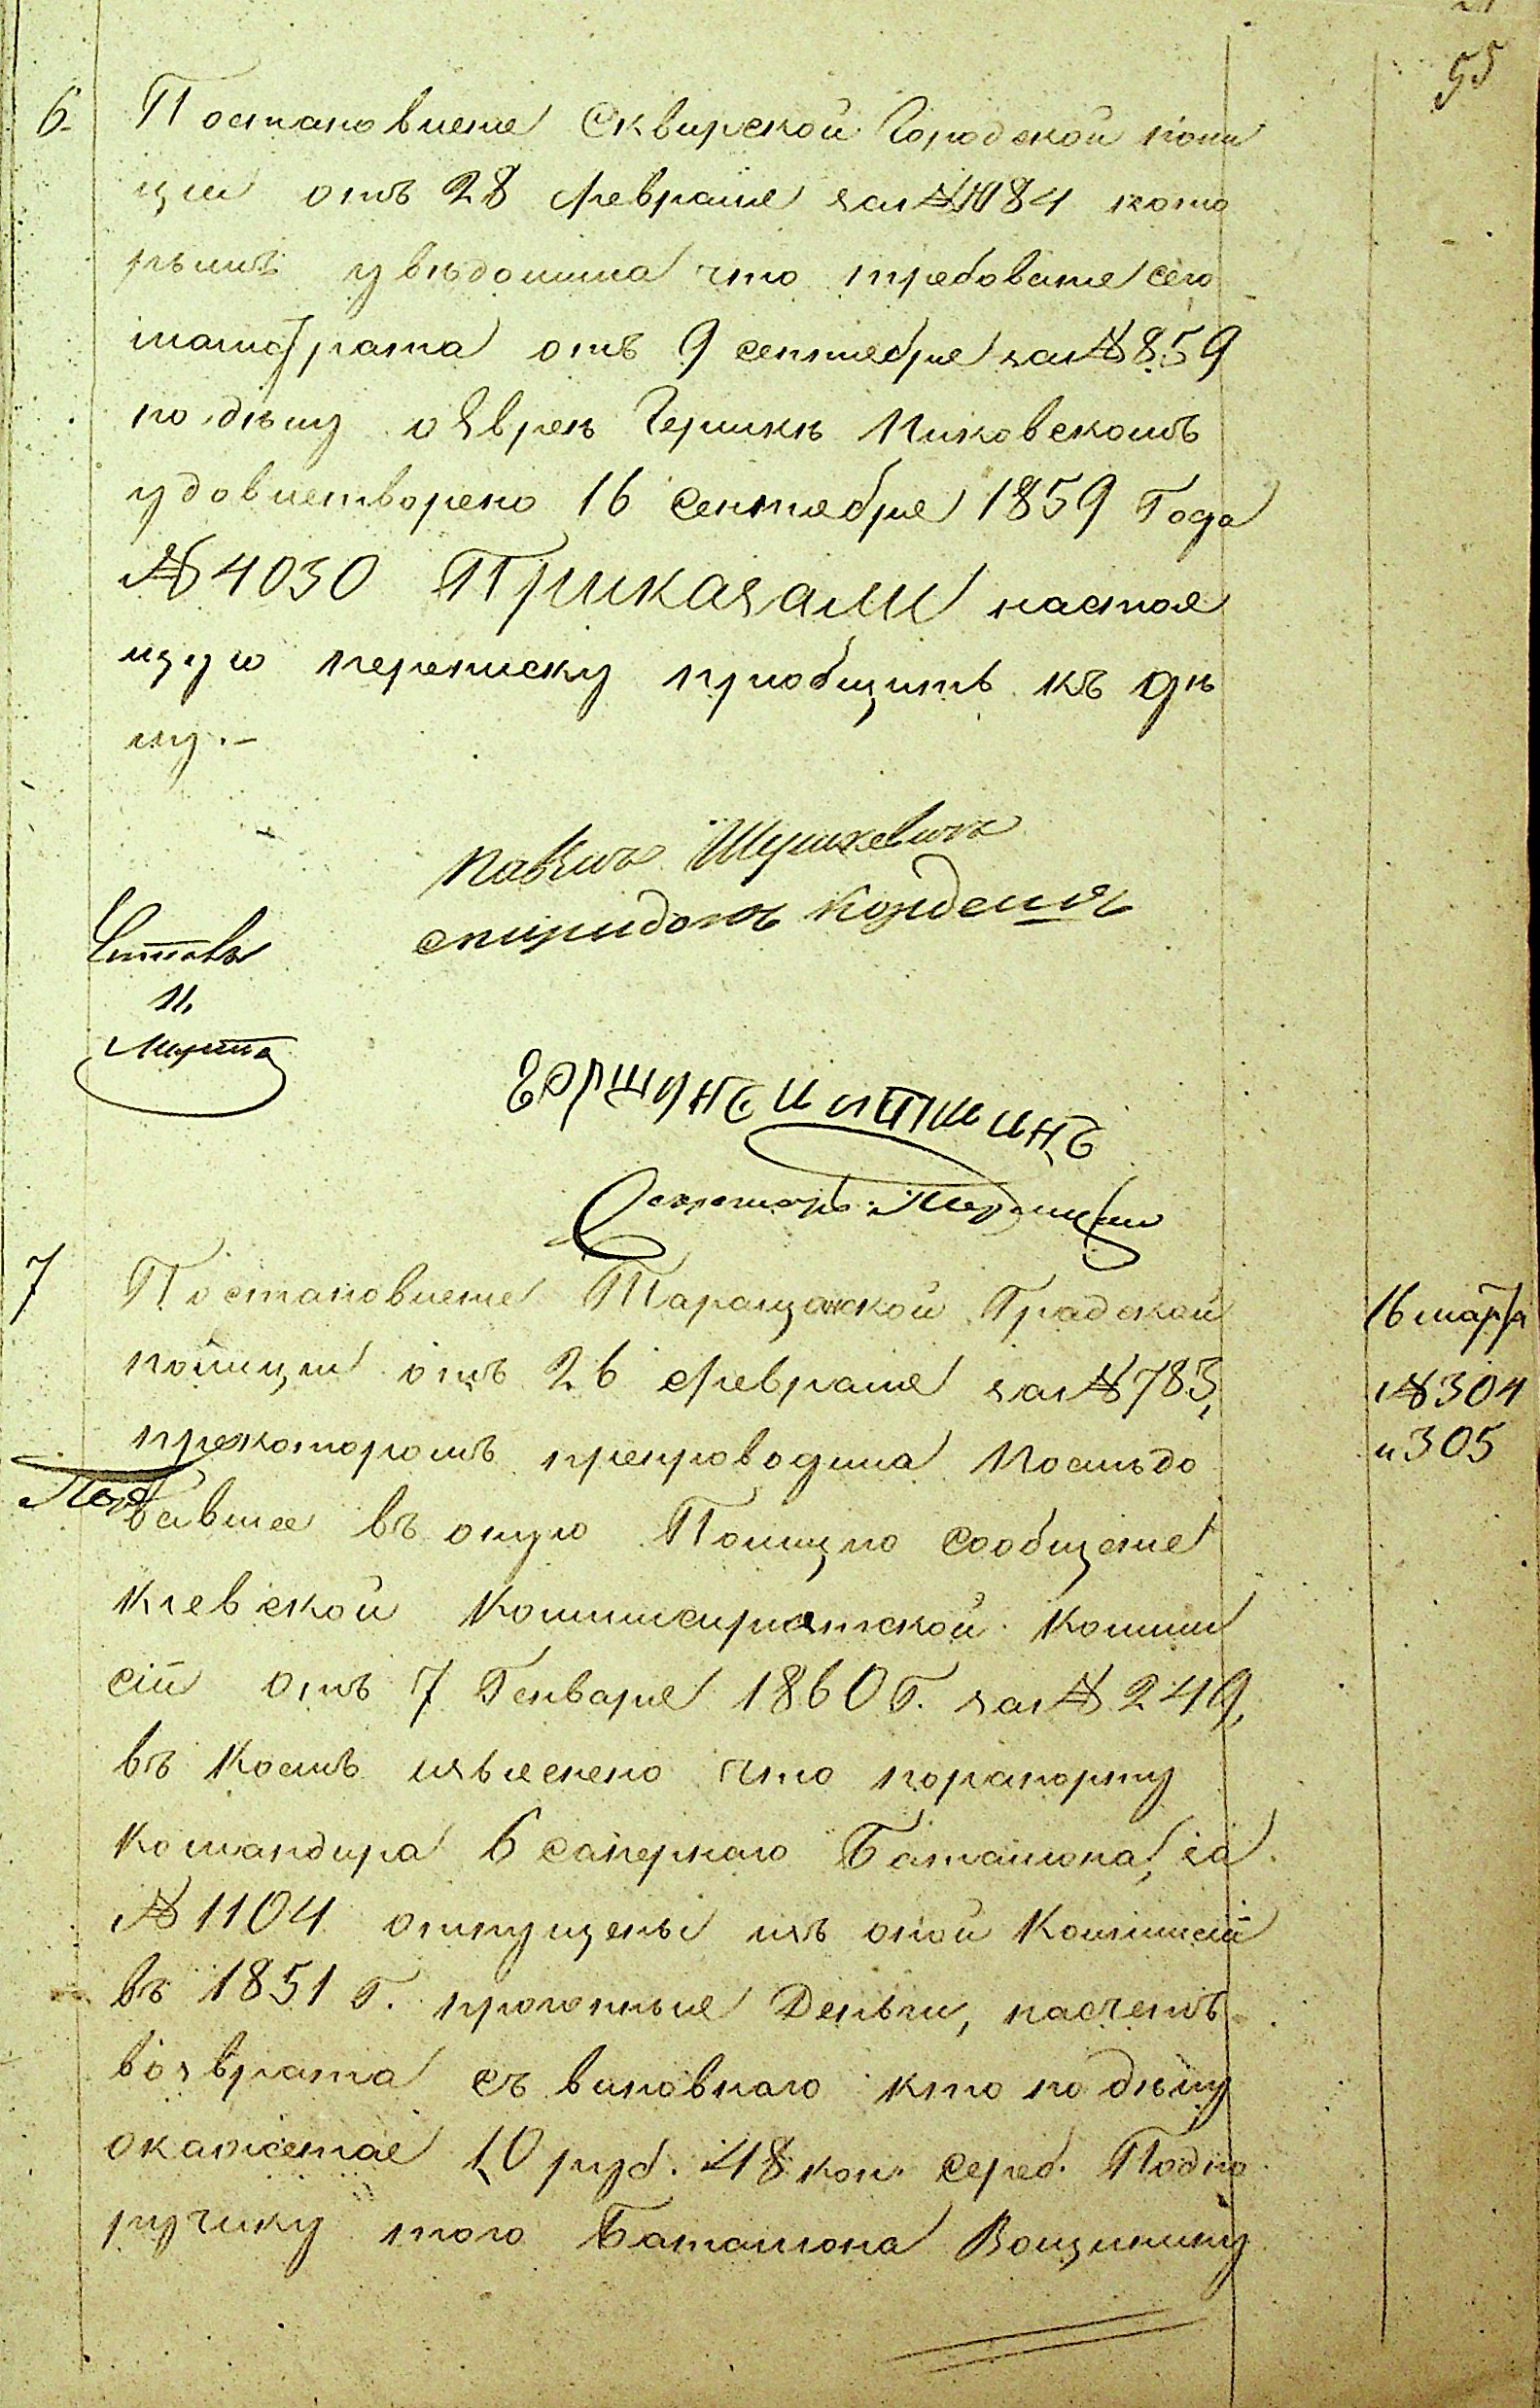 55
6. Постановление Сквирской Городской поли
ціи отъ 28 февраля за №1184 кото
рымъ увѣдомила что требованіе сего
магистрата отъ 9 сентября за №859
по дѣлу о Евреѣ Гершкѣ Пиковскомъ
удовлетворено 16 сентября 1859 Года
№4030 Приказали настоя
щую переписку пріобщить къ дѣ
лу.-
Павелъ
Спиридонъ
Читалъ
11
Марта
Секретарь
7 Постановленіе Таращанской Градской
полиціи отъ 26 февраля за №783,
прикоторомъ препроводила Послѣдо
вавшее въ оную Полицію сообщеніе
Кіевской Коммисиріятской Комми
сіи отъ 7 Генваря 1860 Г. за №249,
въ коемъ изъяснено что порапорту
Командира 6 сапернаго Баталіона, за
№1104 отпущены изъ оной Коммисіи
въ 1851 Г. прогонные Деньги, насчетъ
возврата съ виновнаго кто по дѣлу
окажется 10 руб. 48 коп. сереб. Подпо
ручику того Баталіона Вощинину
16 марта
№304
и 305